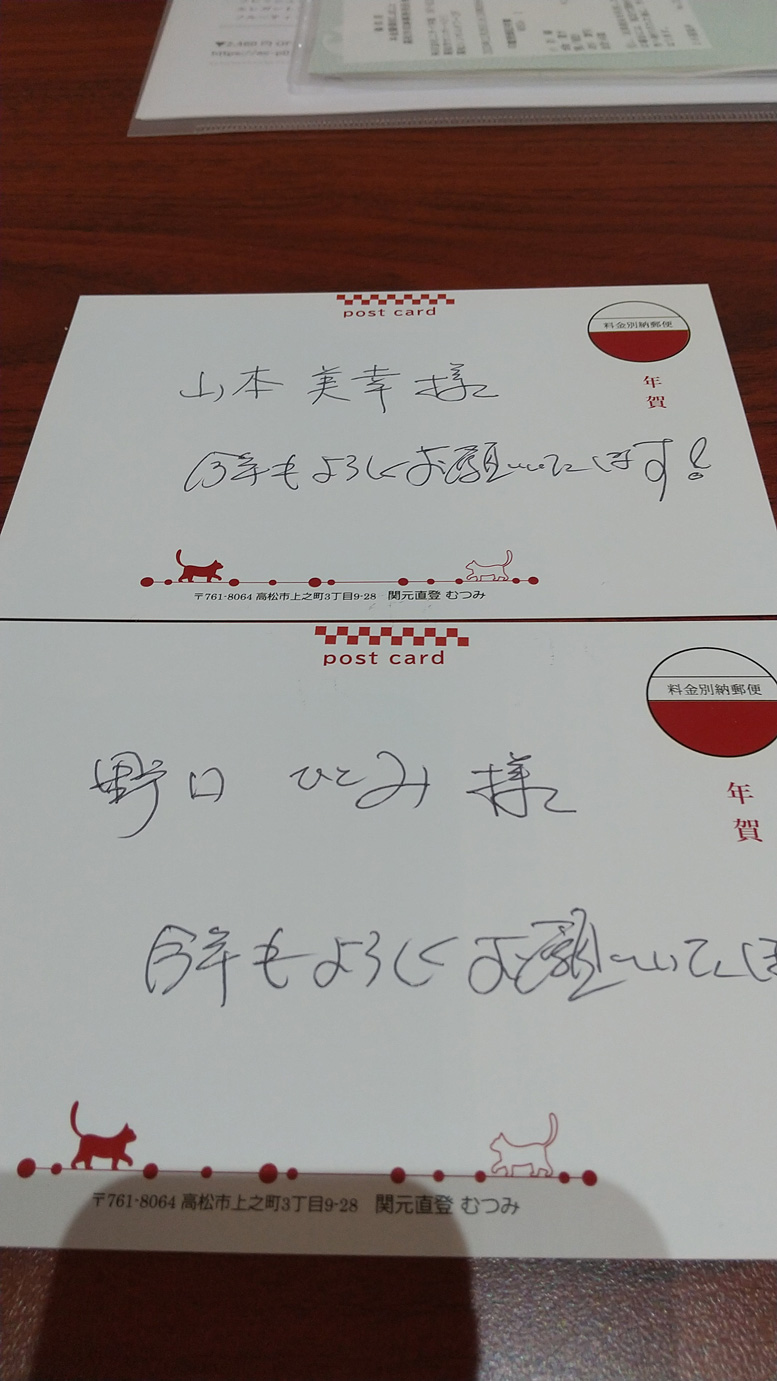 post card
料金別納郵便
年賀
山本 美幸 様
今年もよろしくお願いいたします!
〒761-8064 高松市上之町3丁目9-28 関元直登 むつみ
post card
料金別納郵便
年賀
野口 ひとみ 様
今年もよろしくお願いいたしま
〒761-8064 高松市上之町3丁目9-28 関元直登 むつみ